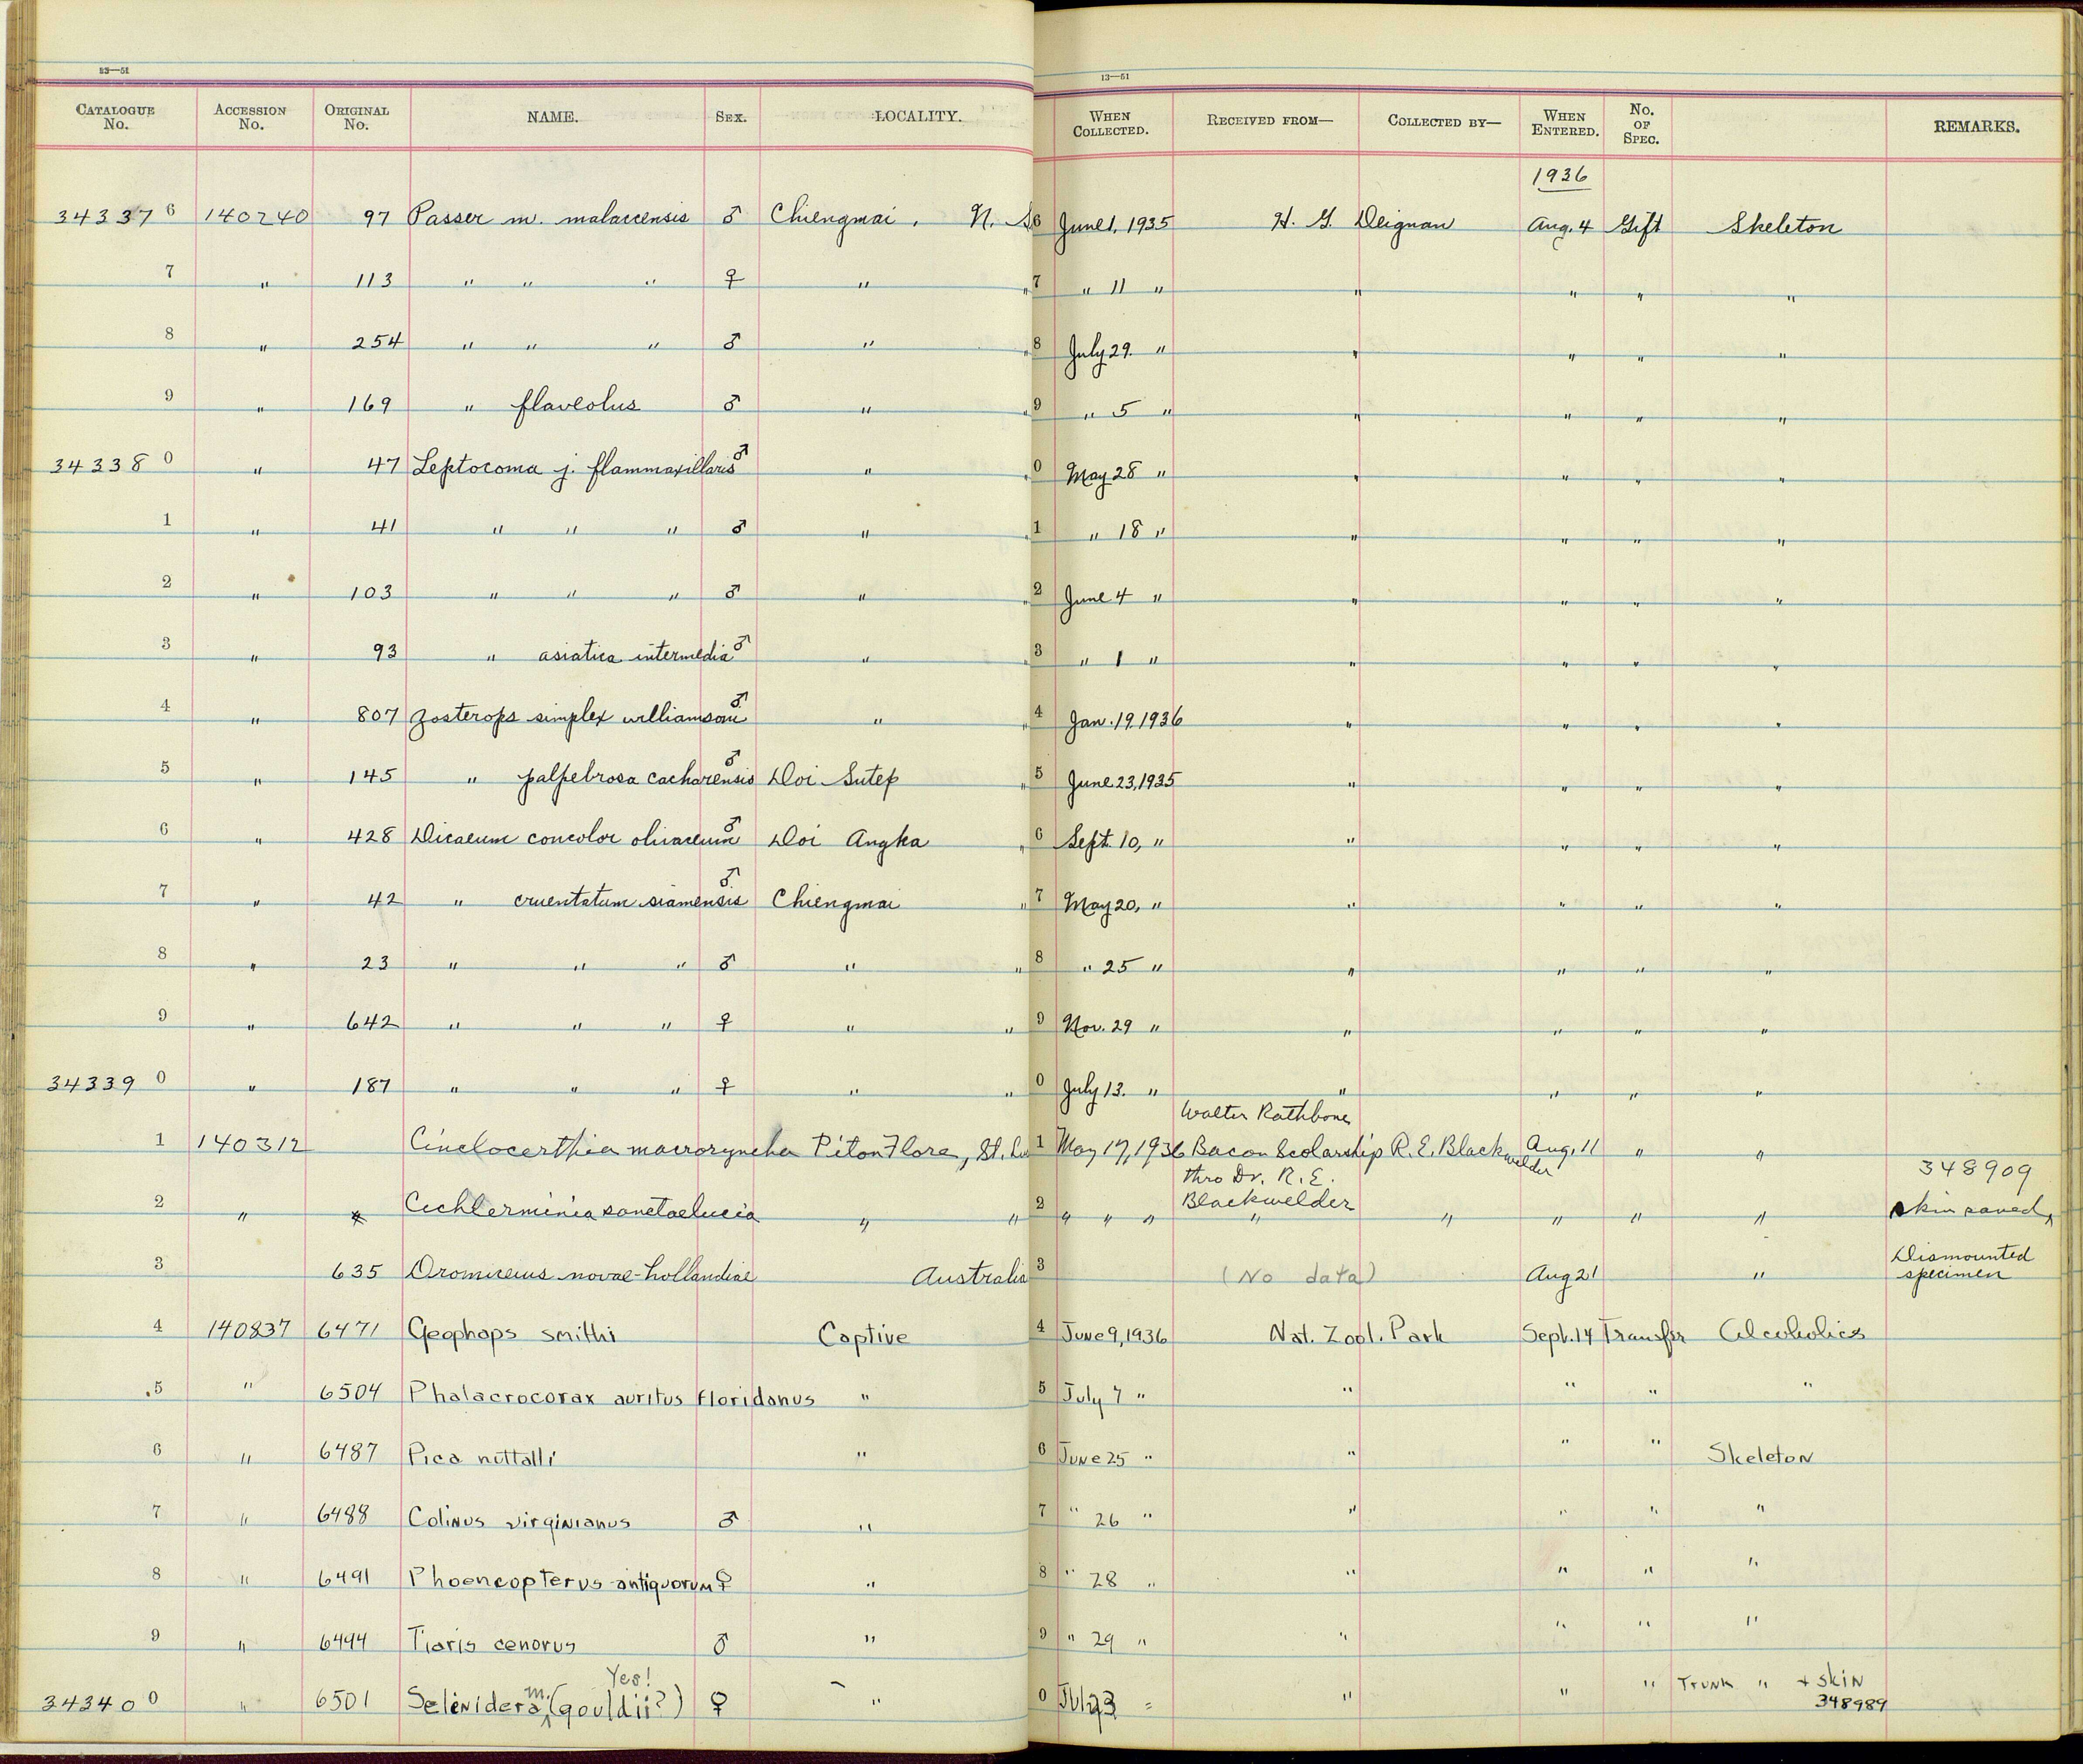 23—51
13—51
CATALOGUE No. ACCESSION No. ORIGINAL No. NAME. SEX. LOCALITY. WHEN COLLECTED. RECEIVED FROM— COLLECTED BY— WHEN ENTERED. No. OF SPEC. REMARKS.
1936
34337 6 140240 97 Passer m. malaccensis ♂ Chiengmai, N. 6 June 1, 1935 H. G. Deignan Aug. 4 Gift Skeleton
7 " 113 " " " ♀ " " 7 " 11 " " " " "
8 " 254 " " " ♂ " " 8 July 29. " " " " "
9 " 169 " flaveolus ♂ " " 9 " 5 " " " " "
34338 0 " 47 Leptocoma j. flammaxillaris ♂ " " 0 May 28 " " " " "
1 " 41 " " " ♂ " " 1 " 18 " " " " "
2 " 103 " " " ♂ " " 2 June 4 " " " " "
3 " 93 " asiatica intermedia ♂ " " 3 " 1 " " " " "
4 " 807 Zosterops simplex williamsoni ♂ " " 4 Jan. 19, 1936 " " " "
5 " 145 " palpebrosa cacharensis ♂ Doi Sutep " 5 June 23, 1935 " " " "
6 " 428 Dicaeum concolor olivaceum ♂ Doi Angka " 6 Sept. 10, " " " " "
7 " 42 " cruentatum siamensis ♂ Chiengmai " 7 May 20, " " " " "
8 " 23 " " " ♂ " " 8 " 25 " " " " "
9 " 642 " " " ♀ " " 9 Nov. 29 " " " " "
34339 0 " 187 " " " ♀ " " 0 July 13. " " " " "
Walter Rathbone
1 140312 Cinclocerthia macroryncha Piton Flore, St. Lu 1 May 17, 1936 Bacon Scolarship R. E. Blackwelder Aug. 11 " "
thro Dr. R. E.
Blackwelder
348909
2 " Cichlerminia sanctaelucia " " 2 " " " " " " " " skin saved
3 635 Dromiceius novae-hollandiae Australia 3 (No data) Aug 21 " Dismounted
specimen
4 140837 6471 Geophaps smithi Captive 4 June 9, 1936 Nat. Zool. Park Sept. 14 Transfer Alcoholics
5 " 6504 Phalacrocorax auritus floridanus " 5 July 7 " " " " "
6 " 6487 Pica nuttalli " 6 June 25 " " " " Skeleton
7 " 6488 Colinus virginianus ♂ " 7 " 26 " " " " "
8 " 6491 Phoencopterus antiquorum ♀ " 8 " 28 " " " " "
9 " 6494 Tiaris cenorus ♂ " 9 " 29 " " " " "
Yes!
34340 0 " 6501 Selenidera m. (gouldii?) ♀ " 0 July 3 " " " " Trunk " + skin
348989